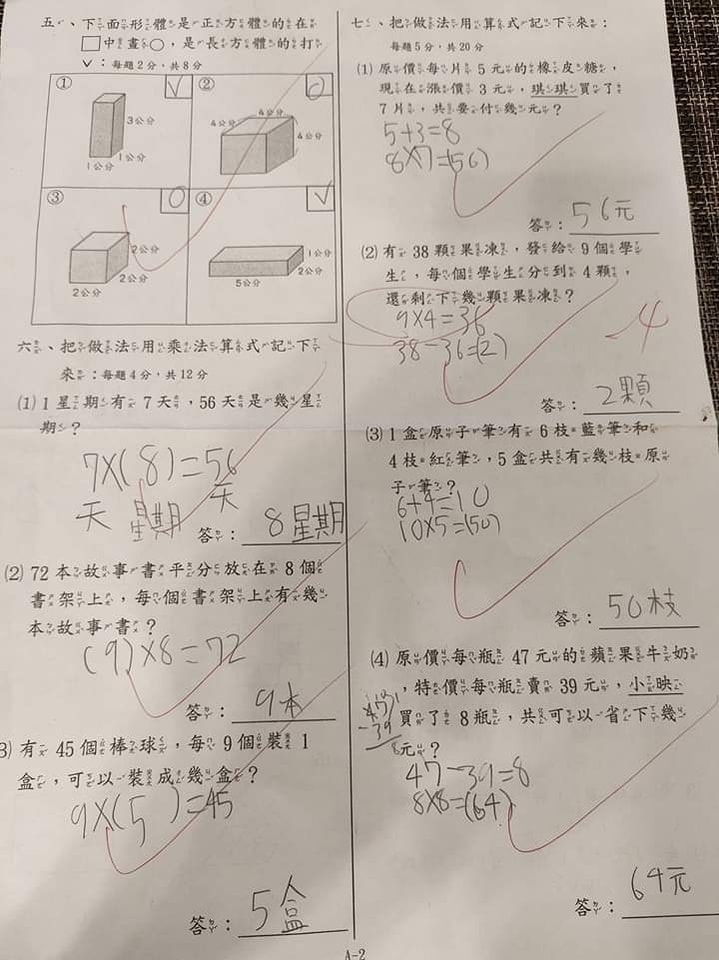 五、下面形體是正方體的在
□中畫○，是長方體的打
ˇ：每題2分，共8分
①
ˇ
3公分
1公分
1公分
②
○
4公分
4公分
4公分
③
○
2公分
2公分
2公分
④
ˇ
1公分
2公分
5公分
六、把做法用乘法算式記下
來：每題4分，共12分
(1) 1星期有7天，56天是幾星
期？
7×(8)=56
天 星期 天
答：8星期
(2) 72本故事書平分放在8個
書架上，每個書架上有幾
本故事書？
(9)×8=72
答：9本
3) 有45個棒球，每9個裝1
盒，可以裝成幾盒？
9×(5)=45
答：5盒
七、把做法用算式記下來：
每題5分，共20分
(1) 原價每片5元的橡皮糖，
現在漲價3元，琪琪買了
7片，共要付幾元？
5+3=8
8×7=(56)
答：56元
(2) 有38顆果凍，發給9個學
生，每個學生分到4顆，
還剩下幾顆果凍？
9×4=36
38-36=(2)
-4
答：2顆
(3) 1盒原子筆有6枝藍筆和
4枝紅筆，5盒共有幾枝原
子筆？
6+4=10
10×5=(50)
答：50枝
(4) 原價每瓶47元的蘋果牛奶
，特價每瓶賣39元，小映
買了8瓶，共可以省下幾
元？
-39
8
47-39=8
8×8=(64)
答：64元
A-2